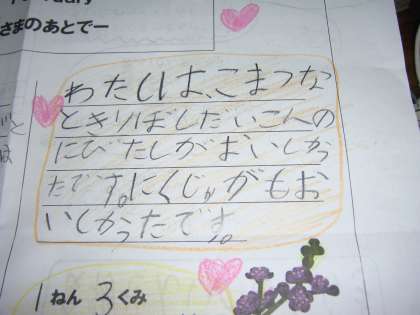 さまのあとでー
わたしは、こまつな
ときりぼしだいこんの
にびたしがおいしかっ
たです。にくじゃがもお
いしかったです。
1ねん3くみ